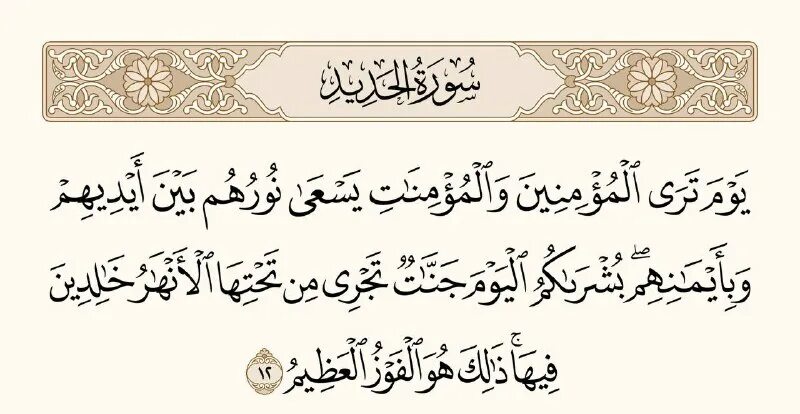 سُورَةُ الحَدِيدِ
يَوۡمَ تَرَى ٱلۡمُؤۡمِنِينَ وَٱلۡمُؤۡمِنَٰتِ يَسۡعَىٰ نُورُهُم بَيۡنَ أَيۡدِيهِمۡ
وَبِأَيۡمَٰنِهِمۖ بُشۡرَىٰكُمُ ٱلۡيَوۡمَ جَنَّٰتٞ تَجۡرِي مِن تَحۡتِهَا ٱلۡأَنۡهَٰرُ خَٰلِدِينَ
فِيهَاۚ ذَٰلِكَ هُوَ ٱلۡفَوۡزُ ٱلۡعَظِيمُ ١٢